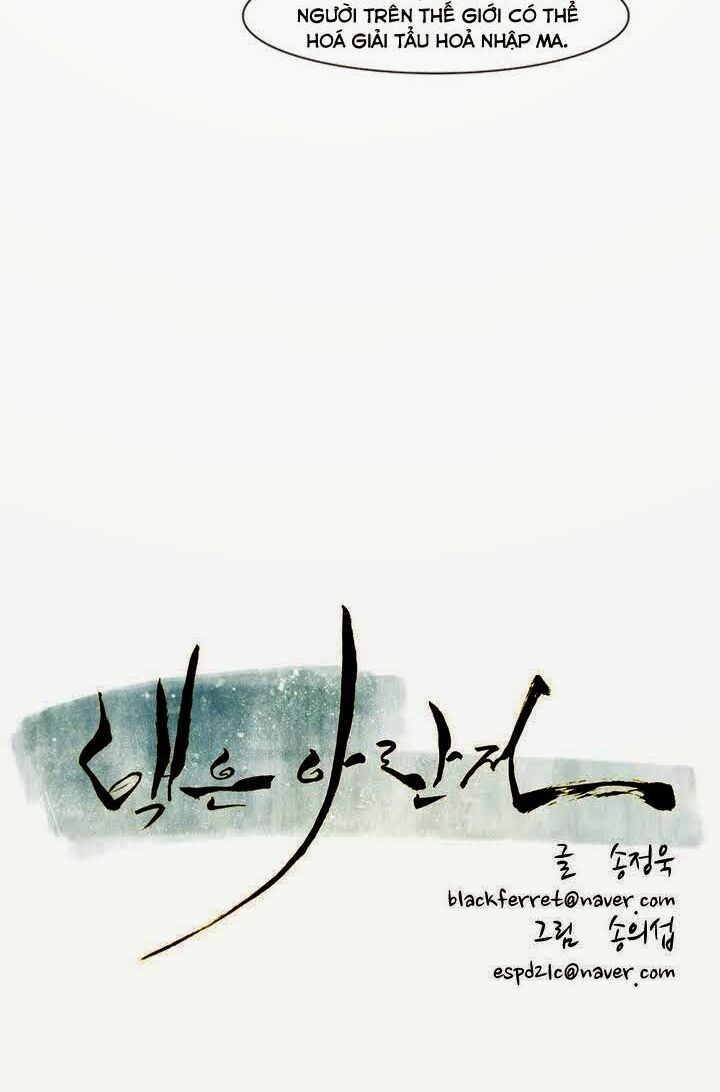 NGƯỜI TRÊN THẾ GIỚI CÓ THỂ
HOÁ GIẢI TẨU HOẢ NHẬP MA.
낡은 아란전
글 송정욱
blackferret@naver.com
그림 송의섭
espd21c@naver.com